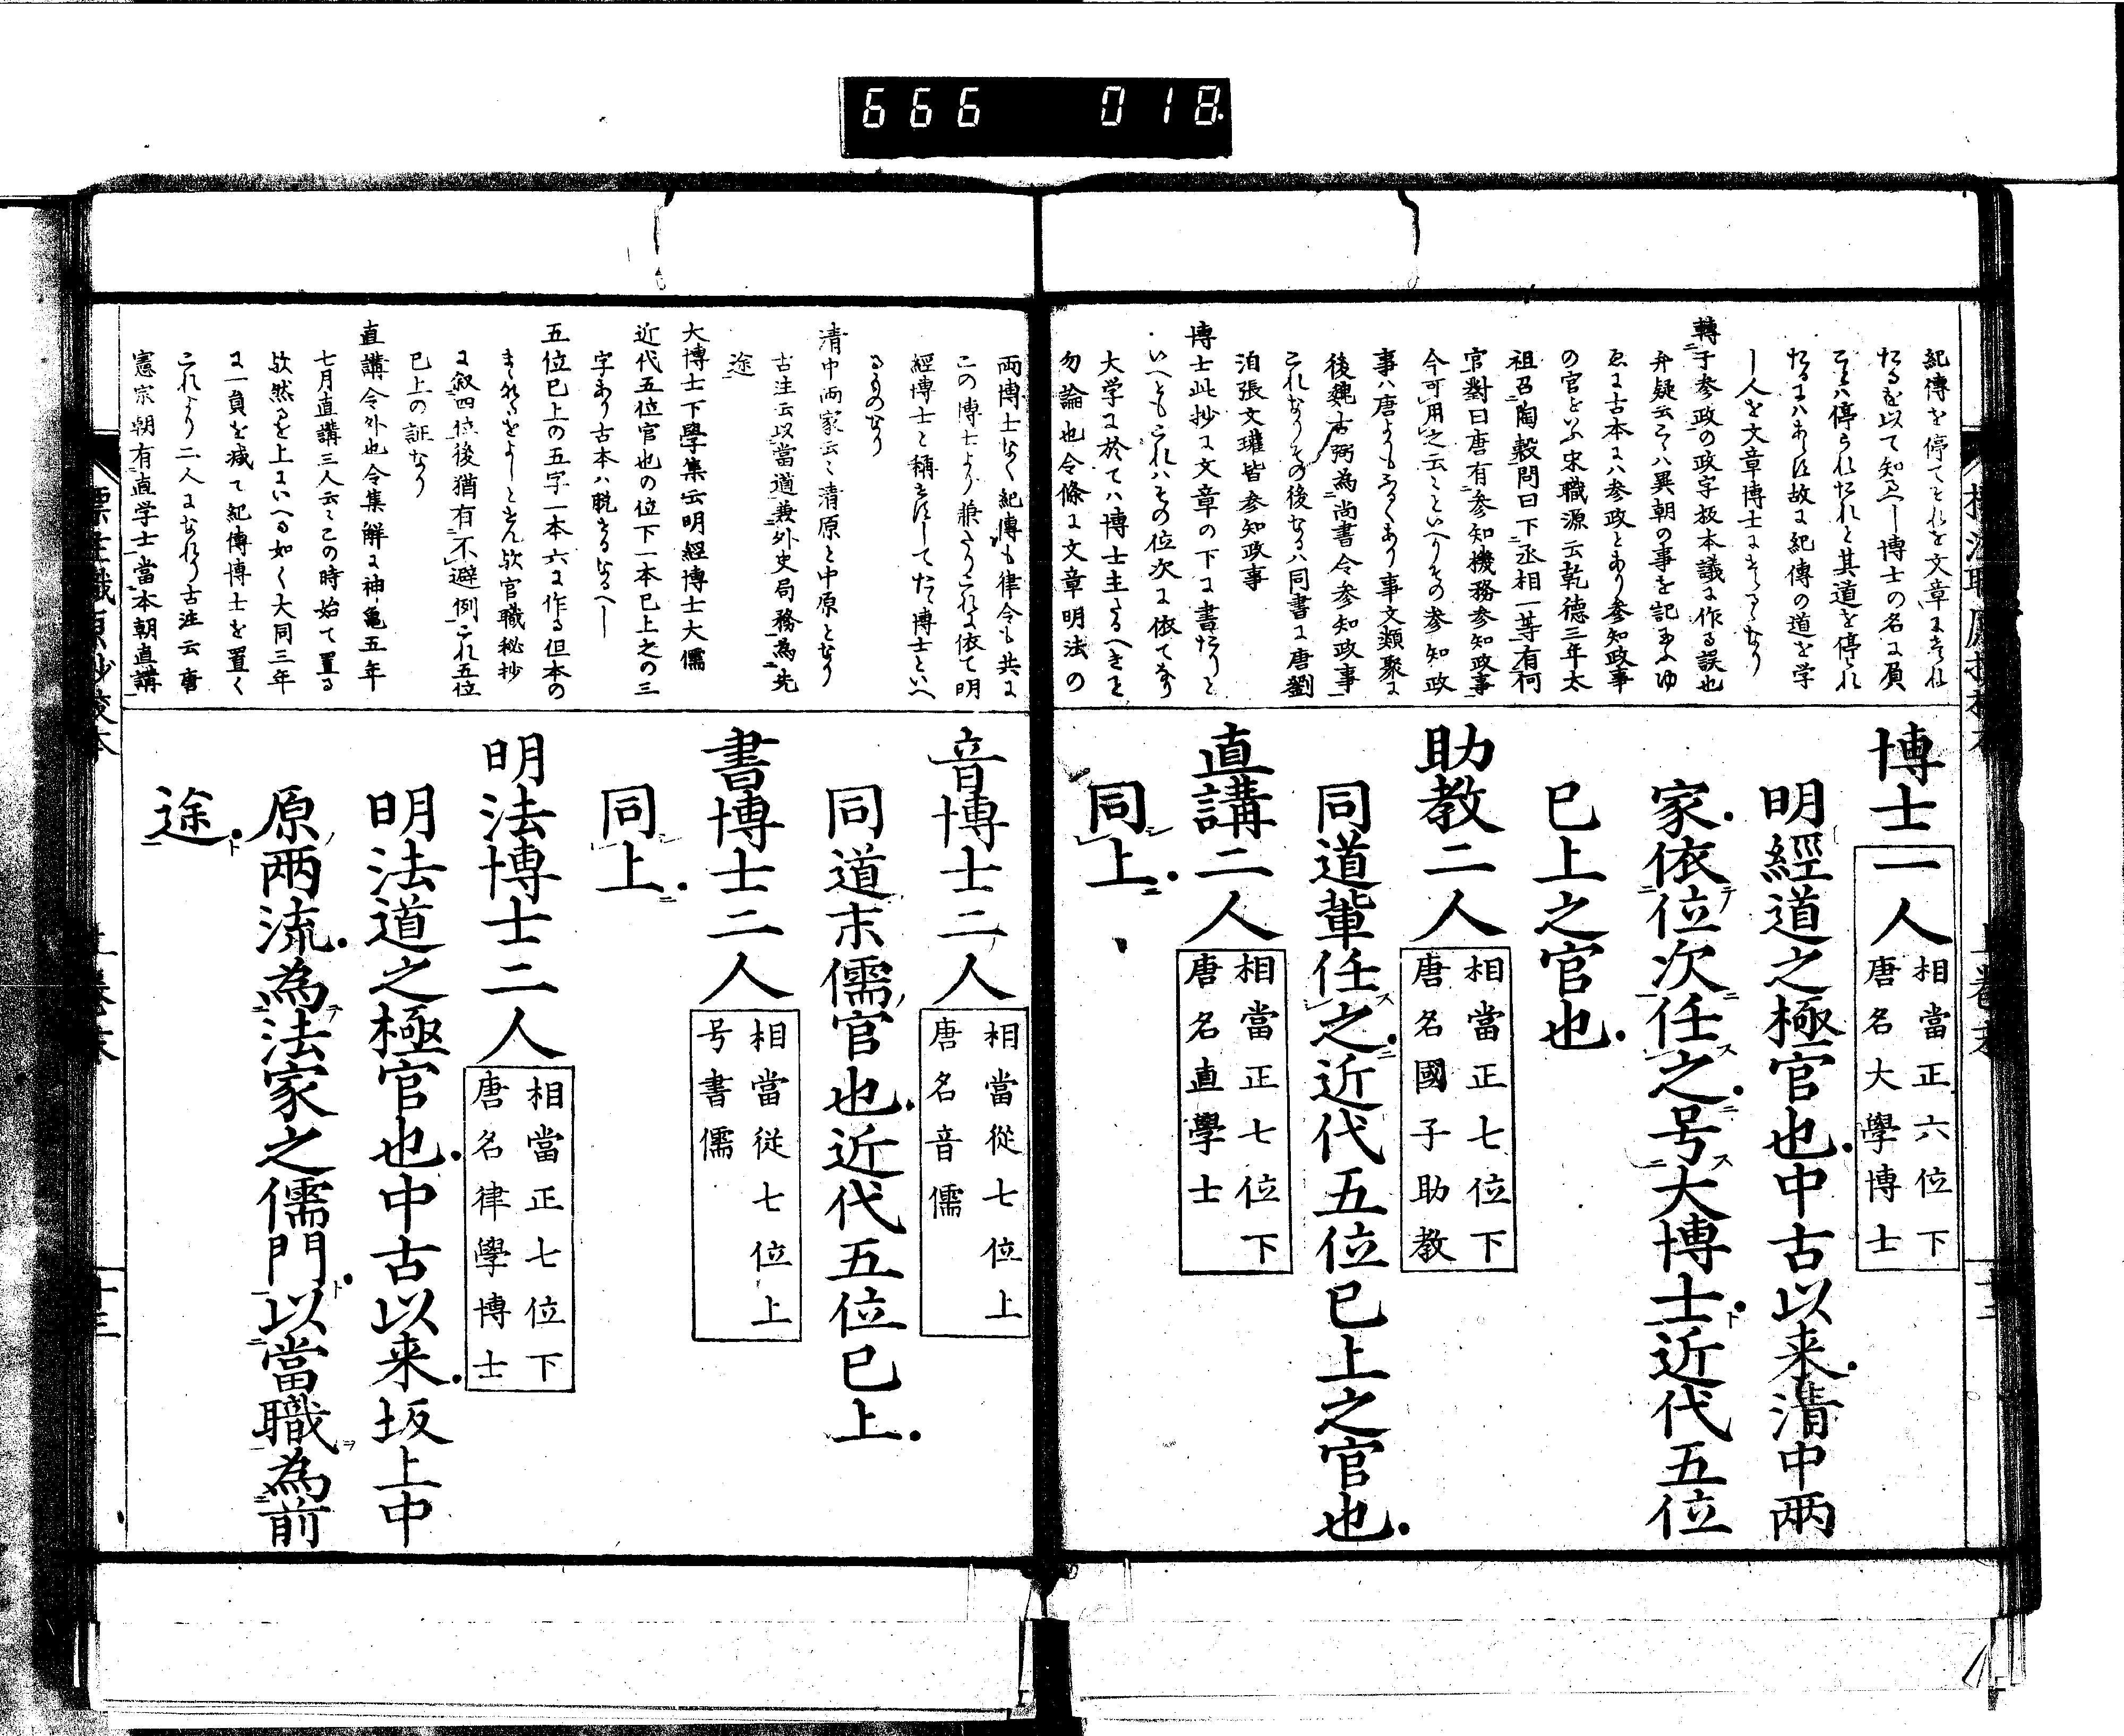 666 018
紀傳を停てこれを文章
たるを以て知るへし博士の名に負
こは停られたれと其道を停られ
たるにはあらす故に紀傳の道を学
轉于参政の政字板本議に作る誤也
弁疑云こは異朝の事を記給ふゆ
ゑに古本には参政とあり参知政事
の官をいふ宋職源云乾徳三年太
祖召陶穀問曰下丞相一等有何
官對曰唐有参知機務参知政事
今可用之云々といへりその参知政
事は唐よりもふるくあり事文類聚に
後魏古弼為尚書令参知政事
これなりその後なるは同書に唐劉
洎張文瓘皆参知政事
博士此抄に文章の下に書たりと
いへともこれはその位次に依てなり
大学に於ては博士主たるへきこと
勿論也令條に文章明法の
博士一人
相當正六位下
唐名大學博士
明經道之極官也中古以来清中两
家依位次任之号大博士近代五位
已上之官也
助教二人
相當正七位下
唐名國子助教
同道輩任之近代五位已上之官也
直講二人
相當正七位下
唐名直學士
同上
両博士なく紀傳も律令も共に
この博士より兼たりこれに依て明
經博士と稱せすしてたゝ博士といへ
るものなり
清中両家云々清原と中原となり
古注云以當道兼外史局務為先
途
大博士下學集云明經博士大儒
近代五位官也の位下一本已上之の三
字あり古本は脱せるなるへし
五位已上の五字一本六に作る但本の
まゝなるをよしとせん欤官職秘抄
に叙四位後猶有不避例これ五位
已上の証なり
直講令外也令集解に神亀五年
七月直講三人云々この時始て置る
欤然るを上にいへる如く大同三年
に一員を减て紀傳博士を置く
これより二人になれり古注云唐
憲宗朝有直学士當本朝直講
音博士二人
相當從七位上
唐名音儒
同道末儒官也近代五位已上
書博士二人
相當從七位上
号書儒
同上
明法博士二人
相當正七位下
唐名律學博士
明法道之極官也中古以来坂上中
原两流為法家之儒門以當職為前
途